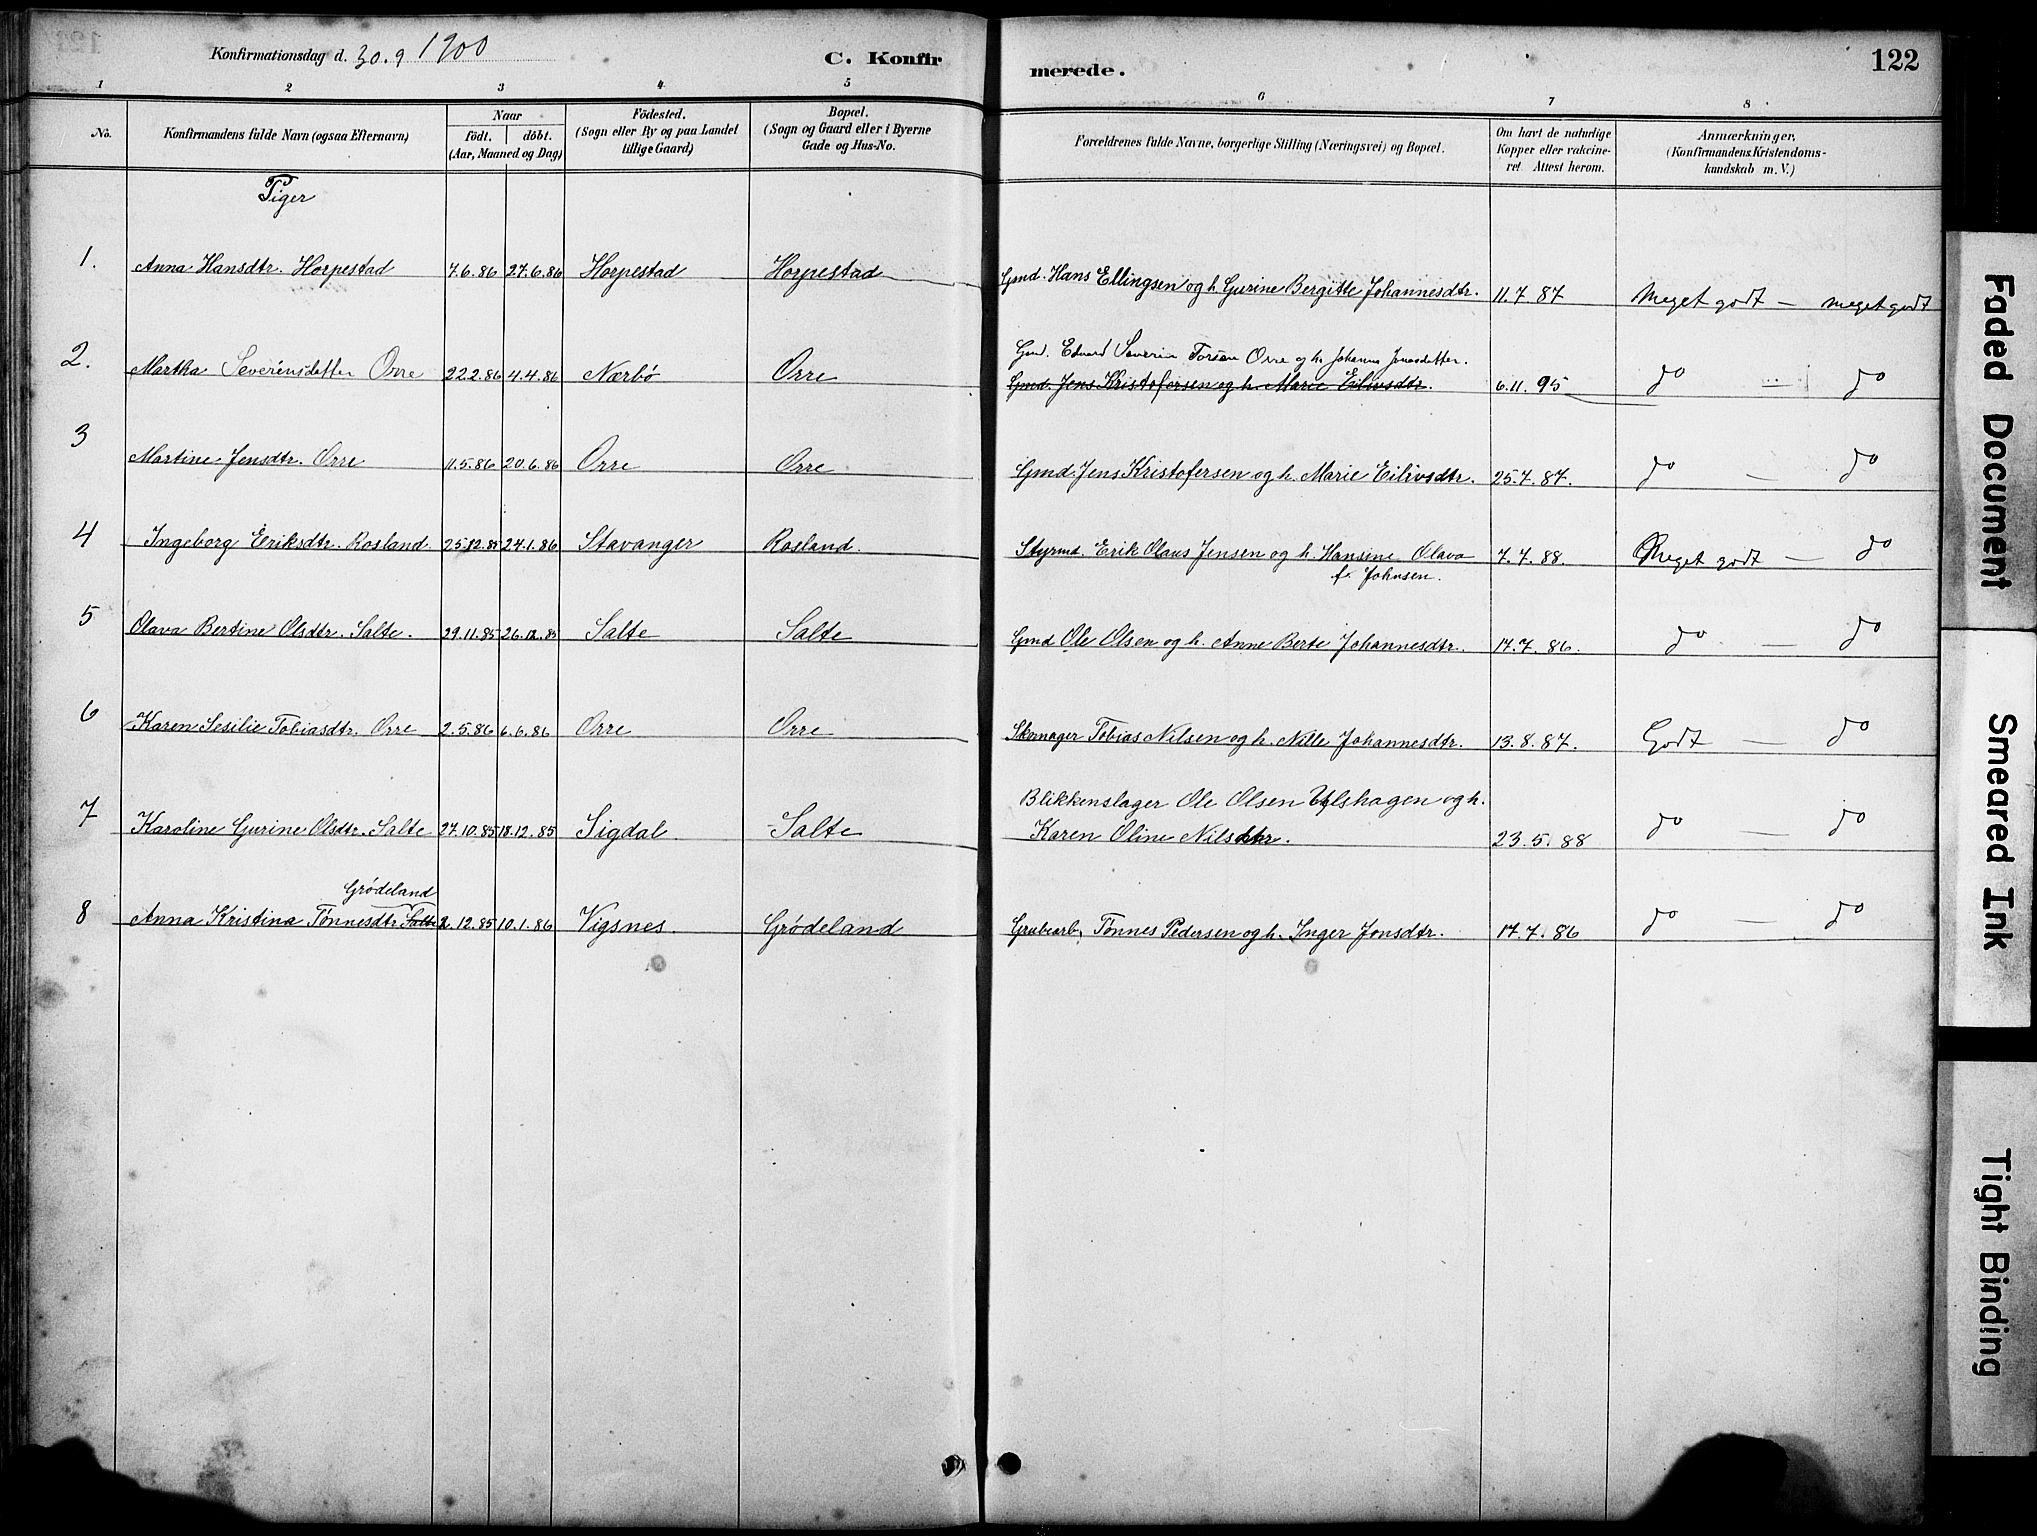 Konfirmationsdag d. 30.9 1900
C. Konfir merede. 122
1 2 3 4 5 6 7 8
No.
Konfirmandens fulde Navn (ogsaa Efternavn)
Naar
födt. döbt.
(Aar, Maaned og Dag)
Födested.
(Sogn eller By og paa Landet
tillige Gaard)
Bopæl.
(Sogn og Gaard eller i Byerne
Gade og Hus-No.
Forældrenes fulde Navne, borgerlige Stilling (Næringsvei) og Bopæl.
Om havt de naturlige
Kopper eller vakcine-
ret. Attest herom.
Anmærkninger.
(Konfirmandens Kristendoms-
kundskab m. V.)
Piger
1. Anna Hansdtr. Horpestad 7.6.86 27.6.86 Horpestad Horpestad Gmd. Hans Ellingsen og h. Gurine Bergitte Johannesdtr. 11.7 87 Meget godt — meget godt
Gmd. Edvard Severin Torsen Orre og h. Johanna Jonasdatter.
2. Martha Severinsdatter Orre 22.2.86 4.4.86 Nærbö Orre Gmd. Jens Kristofersen og h. Marie Eilivsdtr. 6.11.95 do — do
3 Martine Jensdtr. Orre 11.5.86 20.6.86 Orre Orre Gmd. Jens Kristofersen og h. Marie Eilivsdtr. 25.7.87. do — do
4 Ingeborg Eriksdtr. Rosland. 25.12.85 24.1.86 Stavanger Rosland. Styrmd. Erik Olaus Jensen og h. Hansine Olava 7.7.88. Meget godt — do
f. Johnsen.
5 Olava Bertine Olsdtr. Salte. 29.11.85 26.12.85 Salte Salte Gmd Ole Olsen og h. Anne Berte Johannesdtr. 17.7.86. do — do
6 Karen Sesilie Tobiasdtr. Orre 2.5.86 6.6.86 Orre Orre Skomager Tobias Nilsen og h. Nille Johannesdtr. 13.8.87. Godt — do
Blikkenslager Ole Olsen Ulshagen og h.
7 Karoline Gurine Olsdtr. Salte 27.10.85 18.12.85 Sigdal Salte Karen Oline Nilsdtr. 23.5.88 do — do
Grödeland
8 Anna Kristina Tønnesdtr. Salte 2.12.85 10.1.86 Vigsnes. Grödeland Grubearb. Tønnes Pedersen og h. Inger Jonsdtr. 17.7.86 do — do
Faded Document
Smeared Ink
Tight Binding